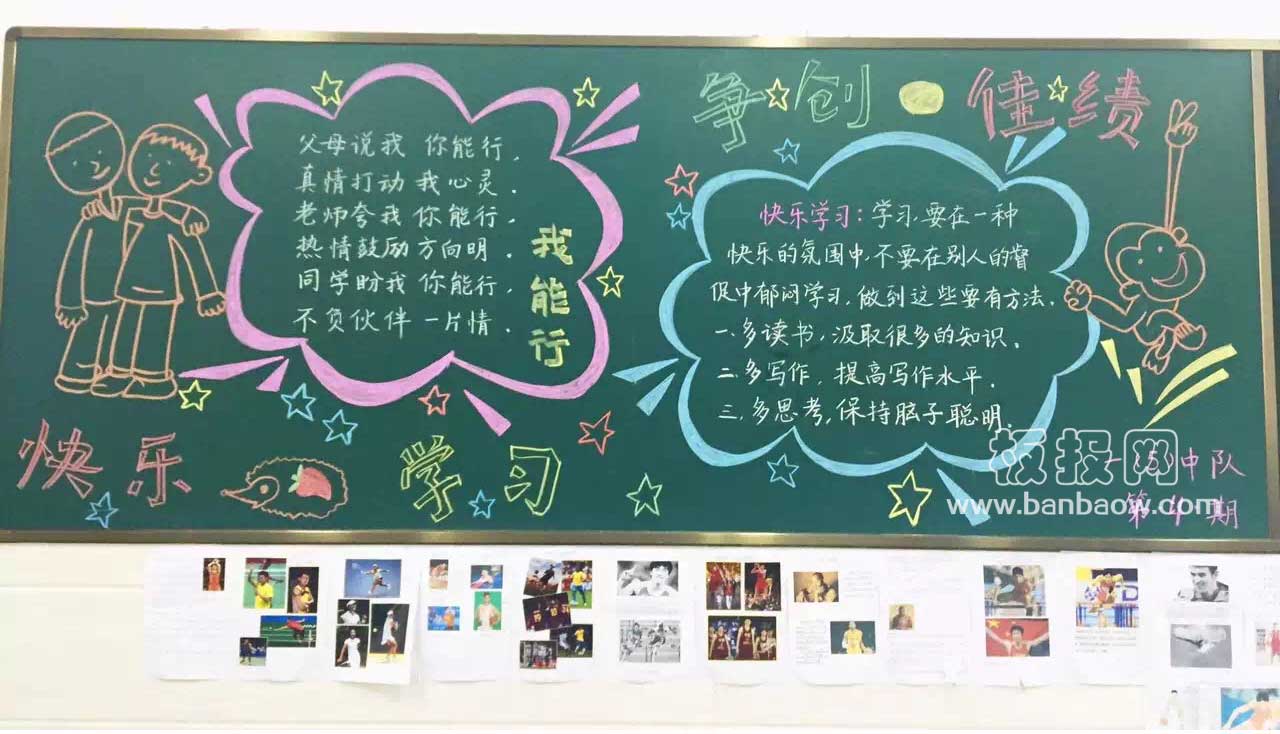 争创·佳绩
父母说我 你能行，
真情打动 我心灵．
老师夸我 你能行，
热情鼓励 方向明．
同学盼我 你能行，
不负伙伴 一片情．
我能行
快乐学习：学习，要在一种
快乐的氛围中，不要在别人的督
促中郁闷学习，做到这些要有方法．
一．多读书，汲取很多的知识．
二．多写作，提高写作水平．
三．多思考，保持脑子聪明．
快乐 学习
中队
第4期
板报网
www.banbaow.com